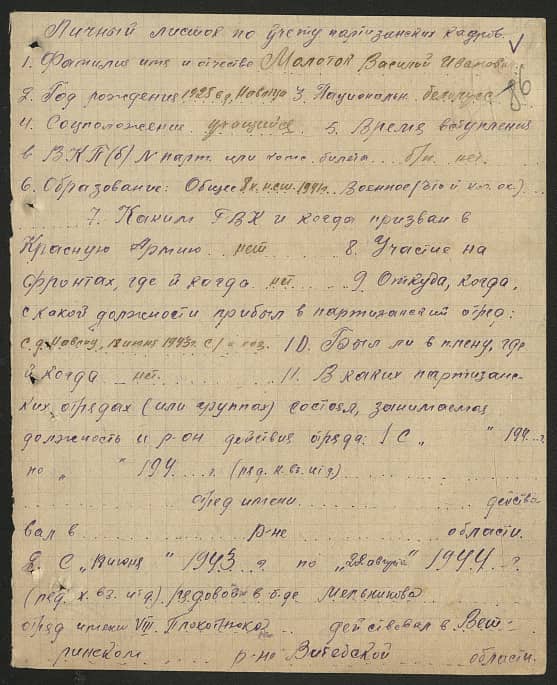 Личный листок по учету партизанских кадров.
86
1. Фамилия имя и отчество Молоток Василий Иванович
2. Год рождения 1925 в д. 3. Национальн. белорус
4. Соцположение учащийся 5. Время вступления
в ВКП(б) N парт. или комс. билета б/п. нет.
6. Образование: Общее 8 кл. 1941г. Военное (что и)
7. Каким ГВК и когда призван в
Красную Армию нет 8. Участие на
фронтах, где и когда нет 9 Откуда, когда,
с какой должности прибыл в партизанский отряд:
с д. июня 1943г. 10. Был ли в плену, где
и когда нет. 11. В каких партизанс-
ких отрядах (или группах) состоял, занимаемая
должность и р-он действия отряда: 1 С „ " 194 г.
по „ " 194 г. (ряд. к. вз. и т д.)
отряд имени действо
вал в р-не области.
2. С „19 июня" 1943 г по 1944 г
(ряд. к. вз. и т д.) рядовой в б-де Мельникова
отряд имени VIII действовал в Вет-
ринском р-не Витебской области.